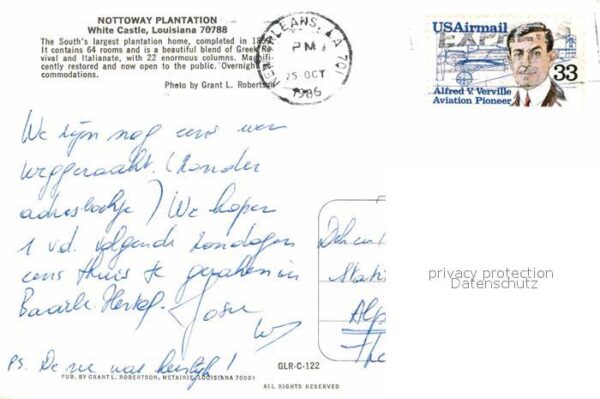 NOTTOWAY PLANTATION
White Castle, Louisiana 70788
The South's largest plantation home, completed in
It contains 64 rooms and is a beautiful blend of Greek Re-
vival and Italianate, with 22 enormous columns. Magnifi-
cently restored and now open to the public. Overnight
commodations.
Photo by Grant L. Robertson
NEW ORLEANS, LA 701
PM
25 OCT
1986
USAirmail
33
Alfred V. Verville
Aviation Pioneer
We zijn nog eens ver
weggeraakt. (zonder
adresboekje) We hopen
1 v.d. volgende zondagen
eens thuis te geraken in
Baarle-Hertog.
privacy protection
Datenschutz
PS. De was heerlijk!
GLR-C-122
PUB. BY GRANT L. ROBERTSON, METAIRIE, LOUISIANA 70001
ALL RIGHTS RESERVED